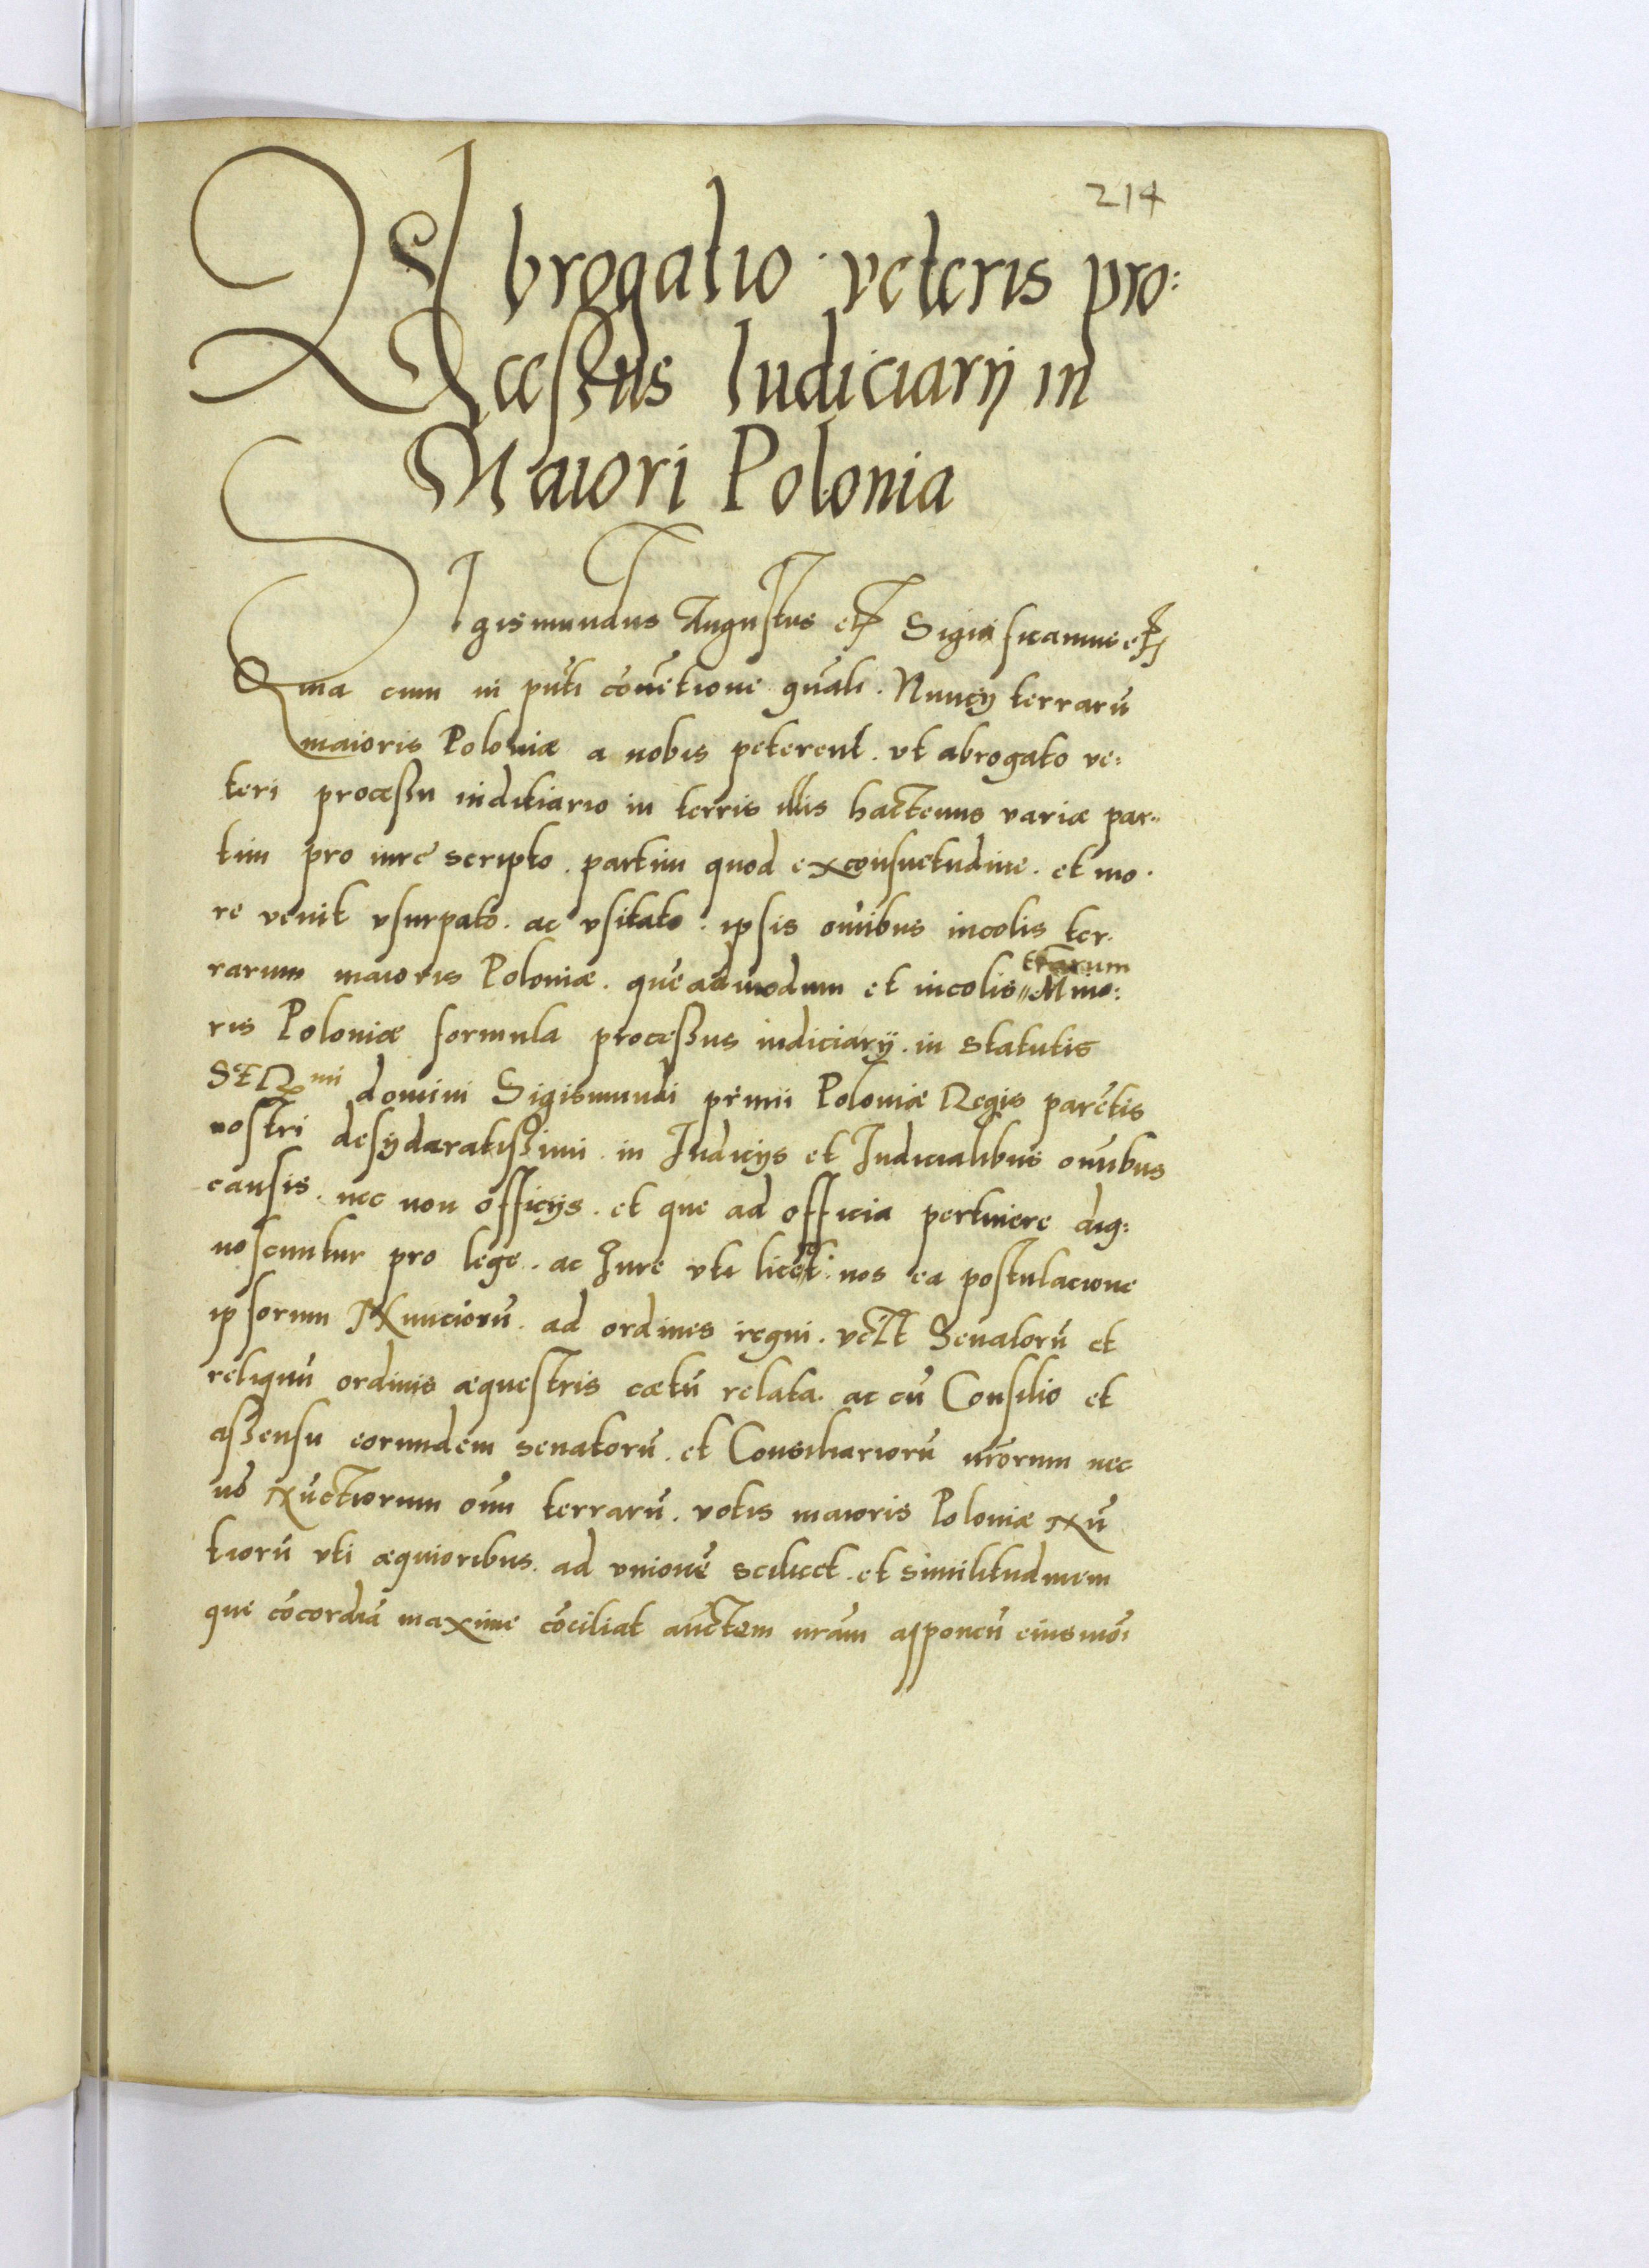 214
Abrogatio veteris pro:
cessus Iudiciarij in
Maiori Polonia
Sigismundus Augustus etc Significamus etc
Quia cum in pñti cõuẽtione gñali. Nuncij terrarũ
maioris Poloniæ a nobis peterent. vt abrogato ve:
teri processu iuditiario in terris illis hactenus variæ par„
tim pro iure scripto. partim quod ex consuetudine. et mo.
re venit vsurpato. ac vsitato. ipsis om̃ibus incolis ter.
rarum maioris Poloniæ. quẽadmodum et incolis „ Mino:
terrarum
ris Poloniæ formula processus iudiciarij. in statutis
domini Sigismundi primi Poloniæ Regis parẽtis
nostri desyderatissimi. in Iudicijs et Iudicialibus om̃ibus
causis. nec non officijs. et que ad officia pertinere dig:
noscuntur pro lege. ac Iure vti licet: nos ea postulacione
ipsorum Nunciorũ. ad ordines regni. vclt Senatorũ et
reliquũ ordinis æquestris cætũ relata. ac cũ Consilio et
assensu eorundem senatorũ. et Consiliariorũ nrõrum nec
nõ Nũctiorum om̃ terrarũ. votis maioris Poloniæ Nũ
tiorũ vti æquioribus. ad vnionẽ scilicet. et similitudinem
que cõcordiã maxime cõciliat aũctem nrãm apponẽ eiusmõi